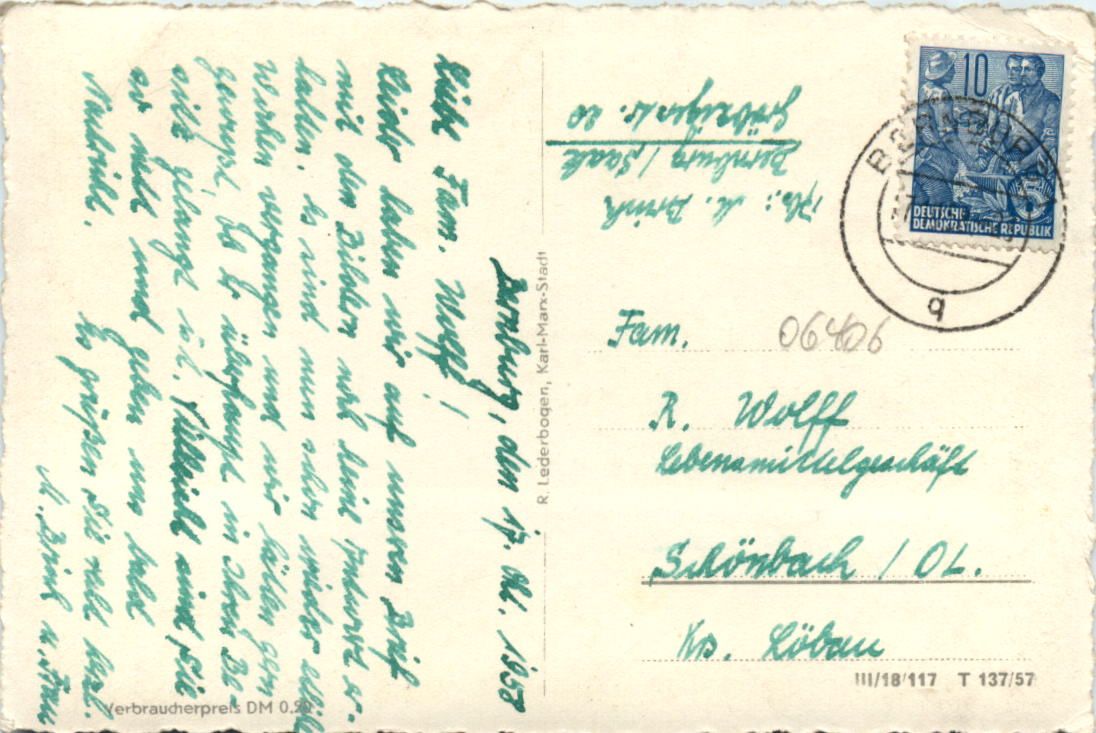 Bernburg, den 17. Okt. 1958
Liebe Fam. Wolff!
Leider haben wir auf unseren Brief
mit den Bildern noch keine Antwort er-
halten. Es sind nun schon wieder etliche
Wochen vergangen und wir hätten gern
gewusst, ob er überhaupt in Ihren Be-
sitz gelangt ist. Vielleicht sind Sie
so nett und geben uns bald
Nachricht.
Es grüßen Sie recht herzl.
M. Brink u. Frau
Abs.: M. Brink
Bernburg / Saale
Gröbzigerstr. 20
10
DEUTSCHE
DEMOKRATISCHE REPUBLIK
BERNBURG
q
Fam.
06406
R. Wolff
Lebensmittelgeschäft
Schönbach / OL.
Krs. Löbau
R. Lederbogen, Karl-Marx-Stadt
III/18/117 T 137/57
Verbraucherpreis DM 0.20